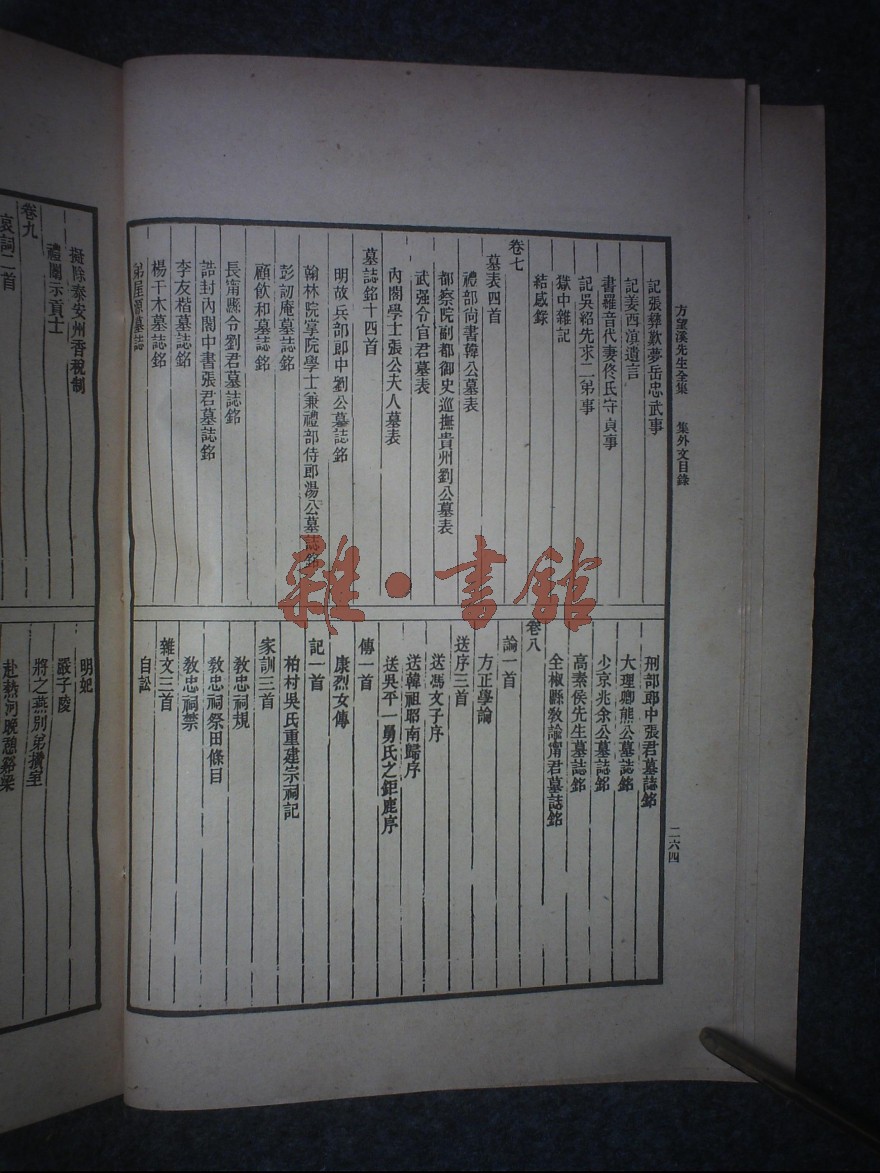 方望溪先生全集 集外文目錄 二六四
記張彝歎夢岳忠武事
記姜西溟遺言
書羅音代妻佟氏守貞事
記吳紹先求二弟事
獄中雜記
結感錄
卷七
墓表四首
禮部尚書韓公墓表
都察院副都御史巡撫貴州劉公墓表
武强令官君墓表
內閣學士張公夫人墓表
墓誌銘十四首
明故兵部郎中劉公墓誌銘
翰林院掌院學士兼禮部侍郎湯公墓誌銘
彭訒庵墓誌銘
顧飲和墓誌銘
長甯縣令劉君墓誌銘
誥封內閣中書張君墓誌銘
李友楷墓誌銘
楊干木墓誌銘
弟屋源墓誌
刑部郎中張君墓誌銘
大理卿熊公墓誌銘
少京兆余公墓誌銘
高素侯先生墓誌銘
全椒縣敎諭甯君墓誌銘
卷八
論一首
方正學論
送序三首
送馮文子序
送韓祖昭南歸序
送吳平一舅氏之鉅鹿序
傳一首
康烈女傳
記一首
柏村吳氏重建宗祠記
家訓三首
敎忠祠規
敎忠祠祭田條目
敎忠祠禁
雜文三首
自訟
擬除泰安州香稅制
禮闈示貢士
卷九
哀詞二首
明妃
嚴子陵
將之燕別弟攢室
赴熱河晚憩谿梁
雜·書館